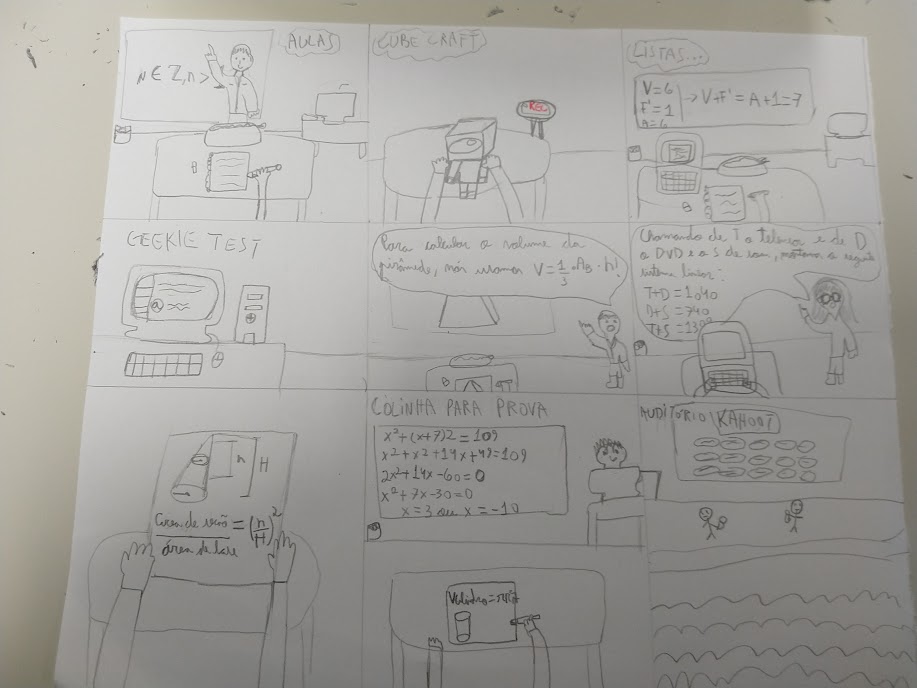 AULAS
n ∈ Z, n >
CUBE CRAFT
REC
LISTAS...
V=6
F=1
A=6
→ V+F' = A+1=7
GEEKIE TEST
@
Para calcular o volume da
pirâmide, nós usamos V=1/3 · AB · h!
Chamando de T a televisão e de D
o DVD e o S de som, montamos o seguinte
sistema linear:
T+D=1040
D+S=740
T+S=1300
h
H
área de seção / área de base = (h/H)²
COLINHA PARA PROVA
x²+(x+7)2=109
x²+x²+14x+49=109
2x²+14x-60=0
x²+7x-30=0
x=3 ou x=-10
Vcilindro=πR²h
AUDITÓRIO KAHOOT